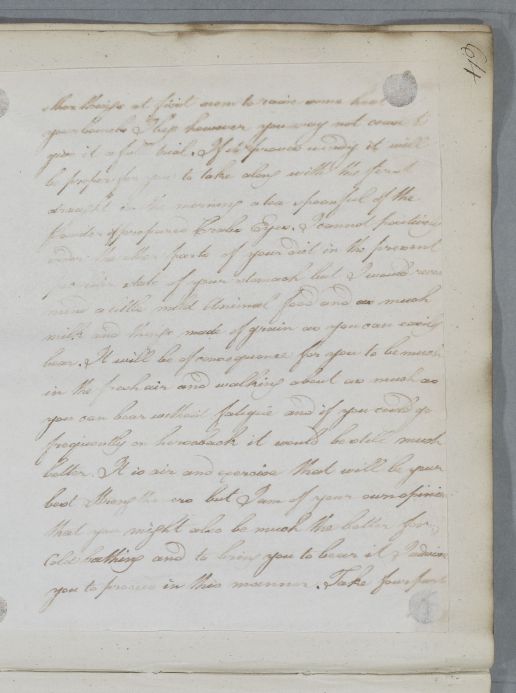 64
other things at first seem to raise some heat
your bowels I hope however you may not cease to
give it a full trial. If it proves windy it will
be proper for you to take along with the first
draught in the morning a tea spoonful of the
powder of prepared Crabs Eyes. I cannot positively
order the other parts of your diet in the present
precise state of your stomach but I would recom
mend a little mild Animal food and as much
milk and things made of grain as you can easily
bear. It will be of consequence for you to be much
in the fresh air and walking about as much as
you can bear without fatigue and if you could go
frequently on horseback it would be still much
better. It is air and exercise that will be your
best strengtheners but I am of your own opinion
that you might also be much the better for
Cold bathing and to bring you to bear it I advise
you to proceed in this manner. Take four parts